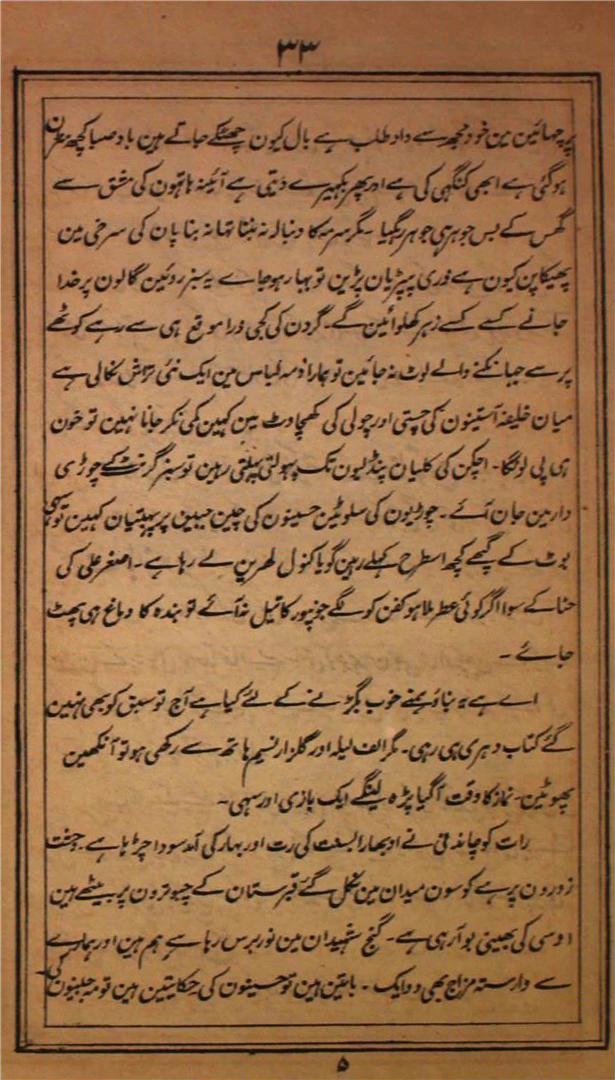 ۳۳
پرچھائین مین خود مجھ سے داد طلب ہے بال کیون چھٹکے جاتے ہین باد صبا کچھ
ہوگئی ہے ابھی کنگہی کی ہے اور پھر بکھیرے دیتی ہے آئینہ ہاتہون کی مشق سے
گھس کے بس جوہر ہی جوہر رہگیا ۔ مگر سرمہ کا دنبالہ نہ بننا تھا نہ بنا پان کی سرخی مین
پھیکا پن کیون ہے ذری پپڑیان پڑین تو بہار ہو جاے یہ سبزہ روئین گالون پر خدا
جانے کسے کسے زہر کھلوائین گے ۔ گردن کی کجی ذرا موقع ہی سے رہے کوٹھے
پر سے جھانکنے والے لوٹ نہ جائین تو ہمارا ذمہ لباس مین ایک نئی تراش نکالی ہے
میان خلیفہ آستینون کی چستی اور چولی کی کھچاوٹ مین کہین کمی نکر جانا نہین تو خون
ہی پی لونگا ۔ اچکن کی کلیان پنڈلیون تک پہولتی پہلتی رہین تو سبز گرنٹ کے چوڑی
دار مین جان آئے ۔ چوڑیون کی سلوٹین حسینون کی چین جبین پر پہبتیان کہین تو سہی
بوٹ کے گپھے کچھ اسطرح کہلے رہین گویا کنول لہرین لے رہا ہے ۔ اصغر علی کی
حنا کے سوا اگر کوئی عطر ملا ہو کفن کو لگے جونپور کا تیل نہ آئے تو بندہ کا دماغ ہی پھٹ
جائے ۔
اے ہے یہ بناؤ ہمنے خوب بگڑنے کے لئے کیا ہے آج تو سبق کو بھی نہین
گئے کتاب دہری ہی رہی ۔ مگر الف لیلہ اور گلزار نسیم ہاتھ سے رکھی ہو تو آنکھین
پھوٹین ۔ نماز کا وقت آگیا پڑہ لینگے ایک بازی اور سہی ۔
رات کو چاندنی نے اوبھارا بسنت کی رت اور بہار کی آمد سودا چڑہا ہے
زورون پر ہے کوسون میدان مین نکل گئے قبرستان کے چبوترون پر بیٹھے ہین
اوسی کی بھینی بو آرہی ہے ۔ گنج شہیدان مین نور برس رہا ہے ہم ہین اور ہمارے
سے وارستہ مزاج بھی دو ایک ۔ باتین ہین تو حسینون کی حکایتین ہین تو مہ جبینون کی
۵